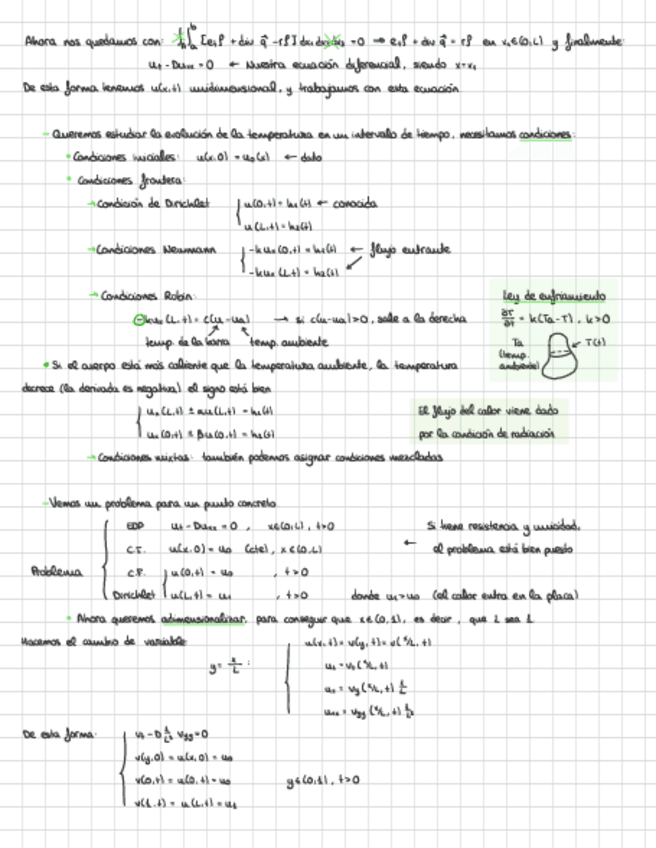 Ahora nos quedamos con: ∫_a^b [e_t ρ + div q̂ - rρ] dx₁ = 0 → e_t ρ + div q̂ = rρ en x₁∈(0,L) y finalmente:
u_t - Du_xx = 0 ← Nuestra ecuación diferencial, siendo x=x₁
De esta forma tenemos u(x,t) unidimensional, y trabajamos con esta ecuación
- Queremos estudiar la evolución de la temperatura en un intervalo de tiempo, necesitamos condiciones:
• Condiciones iniciales: u(x,0) = u₀(x) ← dato
• Condiciones frontera:
→ Condición de Dirichlet { u(0,t) = h₁(t) ← conocida
u(L,t) = h₂(t)
→ Condiciones Neumann { -ku_x(0,t) = h₁(t) ← flujo entrante
-ku_x(L,t) = h₂(t)
→ Condiciones Robin:
-ku_x(L,t) = c(u-ua) → si c(u-ua)>0, sale a la derecha
temp. de la barra temp. ambiente
Ley de enfriamiento
∂T/∂t = k(Ta-T), k>0
Ta (temp. ambiente) ← T(t)
• Si el cuerpo está más caliente que la temperatura ambiente, la temperatura
decrece (la derivada es negativa) el signo está bien
{ u_x(L,t) ± αu(L,t) = h₁(t)
u_x(0,t) ± βu(0,t) = h₂(t)
El flujo del calor viene dado
por la condición de radiación
→ Condiciones mixtas: también podemos asignar condiciones mezcladas
- Vemos un problema para un punto concreto
Problema { EDP u_t - Du_xx = 0, x∈(0,L), t>0
C.I. u(x,0) = u₀ (cte), x∈(0,L)
C.F. { u(0,t) = u₀, t>0
Dirichlet u(L,t) = u₁, t>0 donde u₁>u₀ (el calor entra en la placa)
Si tiene resistencia y unicidad,
← el problema está bien puesto
• Ahora queremos adimensionalizar, para conseguir que x∈(0,1), es decir, que L sea 1
Hacemos el cambio de variable
y = x/L : { u(x,t) = v(y,t) = v(x/L, t)
u_t = v_t(x/L, t)
u_x = v_y(x/L, t) 1/L
u_xx = v_yy(x/L, t) 1/L²
De esta forma: { v_t - D 1/L² v_yy = 0
v(y,0) = u(x,0) = u₀
v(0,t) = u(0,t) = u₀ y∈(0,1), t>0
v(1,t) = u(L,t) = u₁